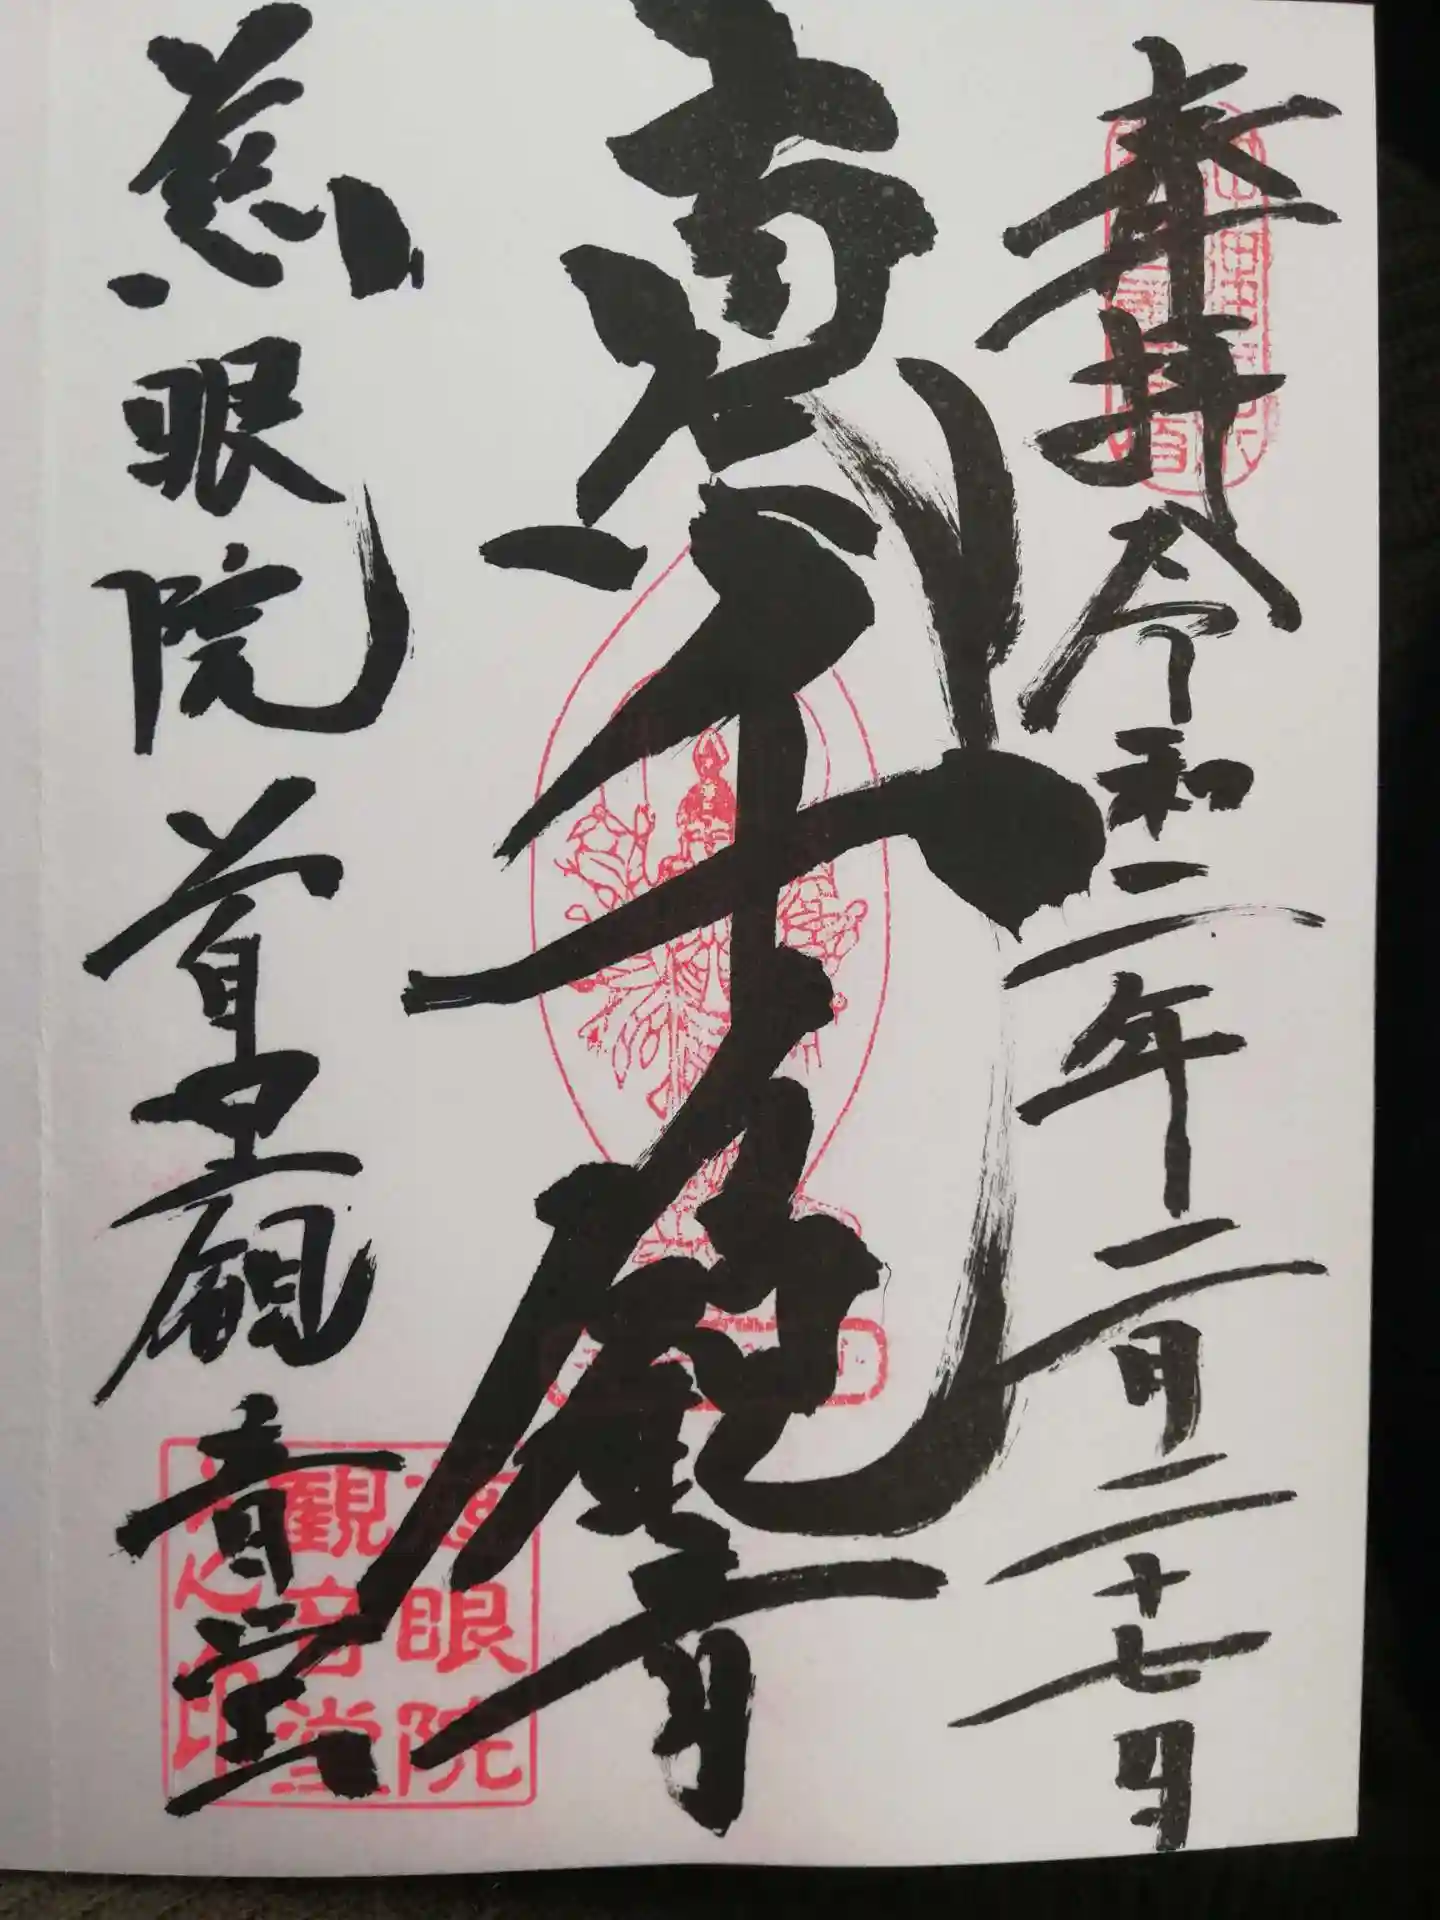 奉拝 令和二年二月二十七日
千 観音
慈眼院 首里観音堂
慈眼院
観音堂
之印